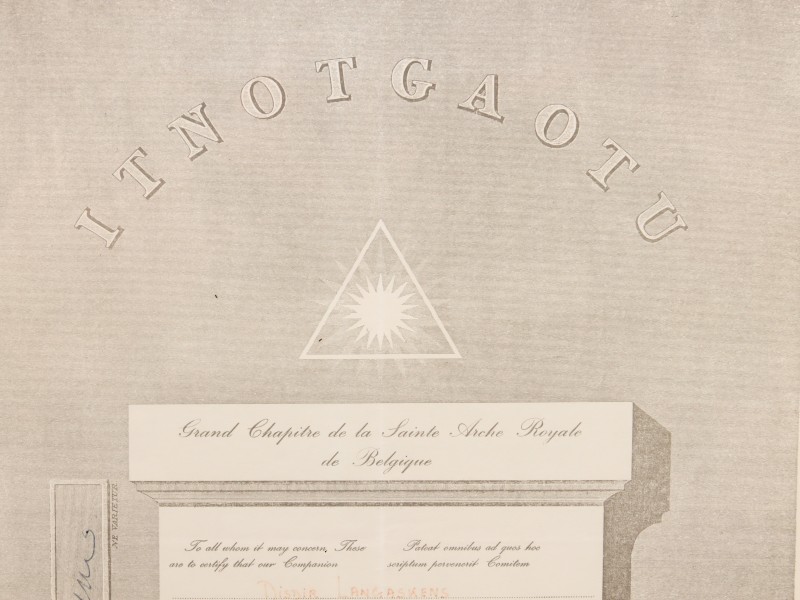 ITNOTGAOTU
Grand Chapitre de la Sainte Arche Royale
de Belgique
NE VARIETUR
To all whom it may concern, These
are to certify that our Companion
Pateat omnibus ad quos hoc
scriptum pervenerit Comitem
Langaskens